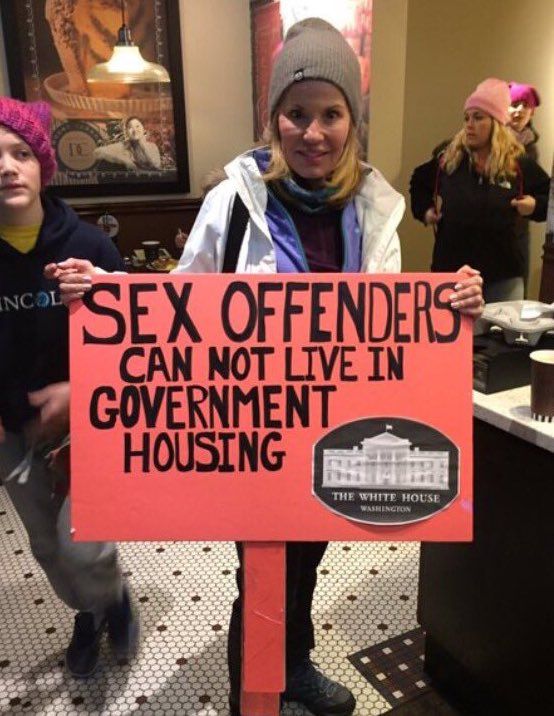 SEX OFFENDERS
CAN NOT LIVE IN
GOVERNMENT
HOUSING
THE WHITE HOUSE
WASHINGTON
DC